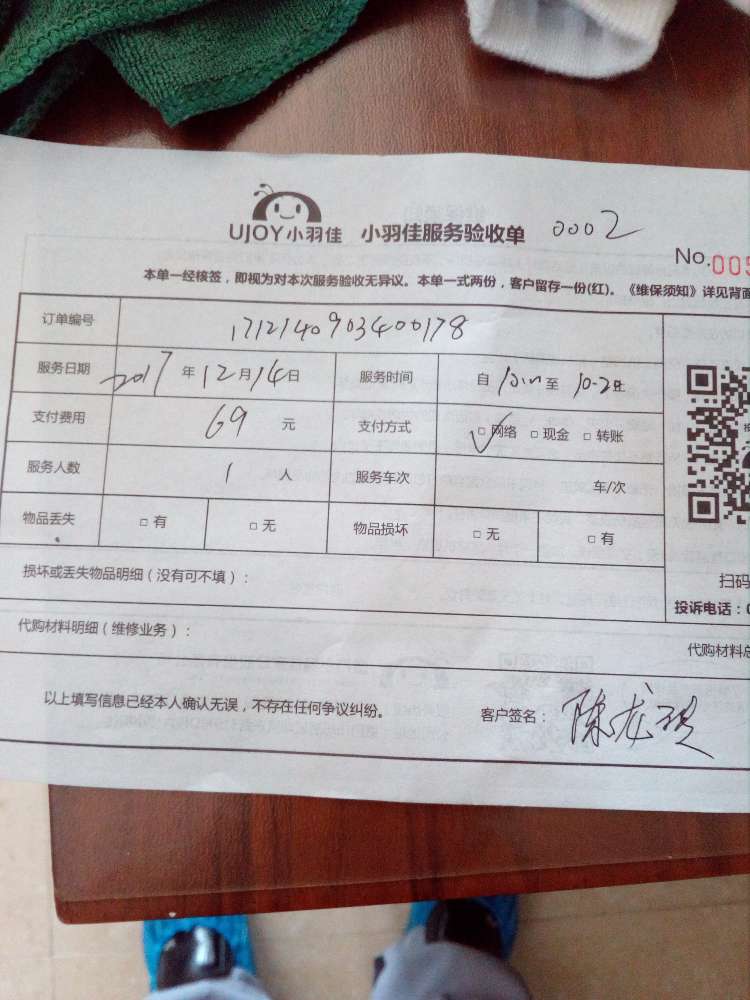 UJOY小羽佳 小羽佳服务验收单 0002
No.005
本单一经核签，即视为对本次服务验收无异议。本单一式两份，客户留存一份(红)。《维保须知》详见背面
订单编号 1712140903400178
服务日期 2017 年 12 月 14 日 服务时间 自 至
支付费用 69 元 支付方式 □ 网络 □ 现金 □ 转账
服务人数 1 人 服务车次 车/次
物品丢失 □ 有 □ 无 物品损坏 □ 无 □ 有
损坏或丢失物品明细（没有可不填）：
扫码
投诉电话：0
代购材料明细（维修业务）：
代购材料总
以上填写信息已经本人确认无误，不存在任何争议纠纷。
客户签名：陈龙